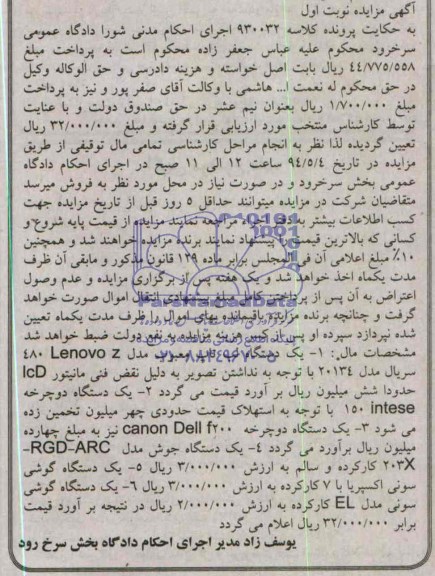 آگهی مزایده نوبت اول
به حکایت پرونده کلاسه ۹۳۰۰۳۲ اجرای احکام مدنی شورا دادگاه عمومی
سرخرود محکوم علیه عباس جعفر زاده محکوم است به پرداخت مبلغ
۴۴/۷۷۵/۵۵۸ ریال بابت اصل خواسته و هزینه دادرسی و حق الوکاله وکیل
در حق محکوم له نعمت ا... هاشمی با وکالت آقای صفر پور و نیز به پرداخت
مبلغ ۱/۷۰۰/۰۰۰ ریال بعنوان نیم عشر در حق صندوق دولت و با عنایت
توسط کارشناس منتخب مورد ارزیابی قرار گرفته و مبلغ ۳۲/۰۰۰/۰۰۰ ریال
تعیین گردیده لذا نظر به انجام مراحل کارشناسی تمامی مال توقیفی از طریق
مزایده در تاریخ ۹۴/۵/۴ ساعت ۱۲ الی ۱۱ صبح در اجرای احکام دادگاه
عمومی بخش سرخرود و در صورت نیاز در محل مورد نظر به فروش میرسد
متقاضیان شرکت در مزایده میتوانند حداقل ۵ روز قبل از تاریخ مزایده جهت
کسب اطلاعات بیشتر به دفتر اجرا مراجعه نمایند مزایده از قیمت پایه شروع و
کسانی که بالاترین قیمت را پیشنهاد نمایند برنده مزایده خواهند شد و همچنین
۱۰٪ مبلغ اعلامی آن فی المجلس برابر ماده ۱۲۹ قانون مذکور و مابقی آن ظرف
مدت یکماه اخذ خواهد شد و یک هفته پس از برگزاری مزایده و عدم وصول
اعتراض به آن پس از پرداخت کامل مبلغ پیشنهادی انتقال اموال صورت خواهد
گرفت و چنانچه برنده مزایده باقیمانده بهای اموال را ظرف مدت یکماه تعیین
شده نپردازد سپرده او پس از کسر هزینه مزایده به نفع دولت ضبط خواهد شد
مشخصات مال: ۱- یک دستگاه لب تاب معیوب مدل Lenovo z ۴۸۰
سریال مدل ۲۰۱۳۴ با توجه به نداشتن تصویر به دلیل نقض فنی مانیتور lcD
حدودا شش میلیون ریال بر آورد قیمت می گردد ۲- یک دستگاه دوچرخه
intese ۱۵۰ با توجه به استهلاک قیمت حدودی چهر میلیون تخمین زده
می شود ۳- یک دستگاه دوچرخه canon Dell f۲۰۰ نیز به مبلغ چهارده
میلیون ریال برآورد می گردد ۴- یک دستگاه جوش مدل RGD-ARC-
۲۰۳X کارکرده و سالم به ارزش ۳/۰۰۰/۰۰۰ ریال ۵- یک دستگاه گوشی
سونی اکسپریا با ۷ کارکرده به ارزش ۳/۰۰۰/۰۰۰ ریال ۶- یک دستگاه گوشی
سونی مدل EL کارکرده به ارزش ۲/۰۰۰/۰۰۰ ریال در نتیجه بر آورد قیمت
برابر ۳۲/۰۰۰/۰۰۰ ریال اعلام می گردد
یوسف زاد مدیر اجرای احکام دادگاه بخش سرخ رود